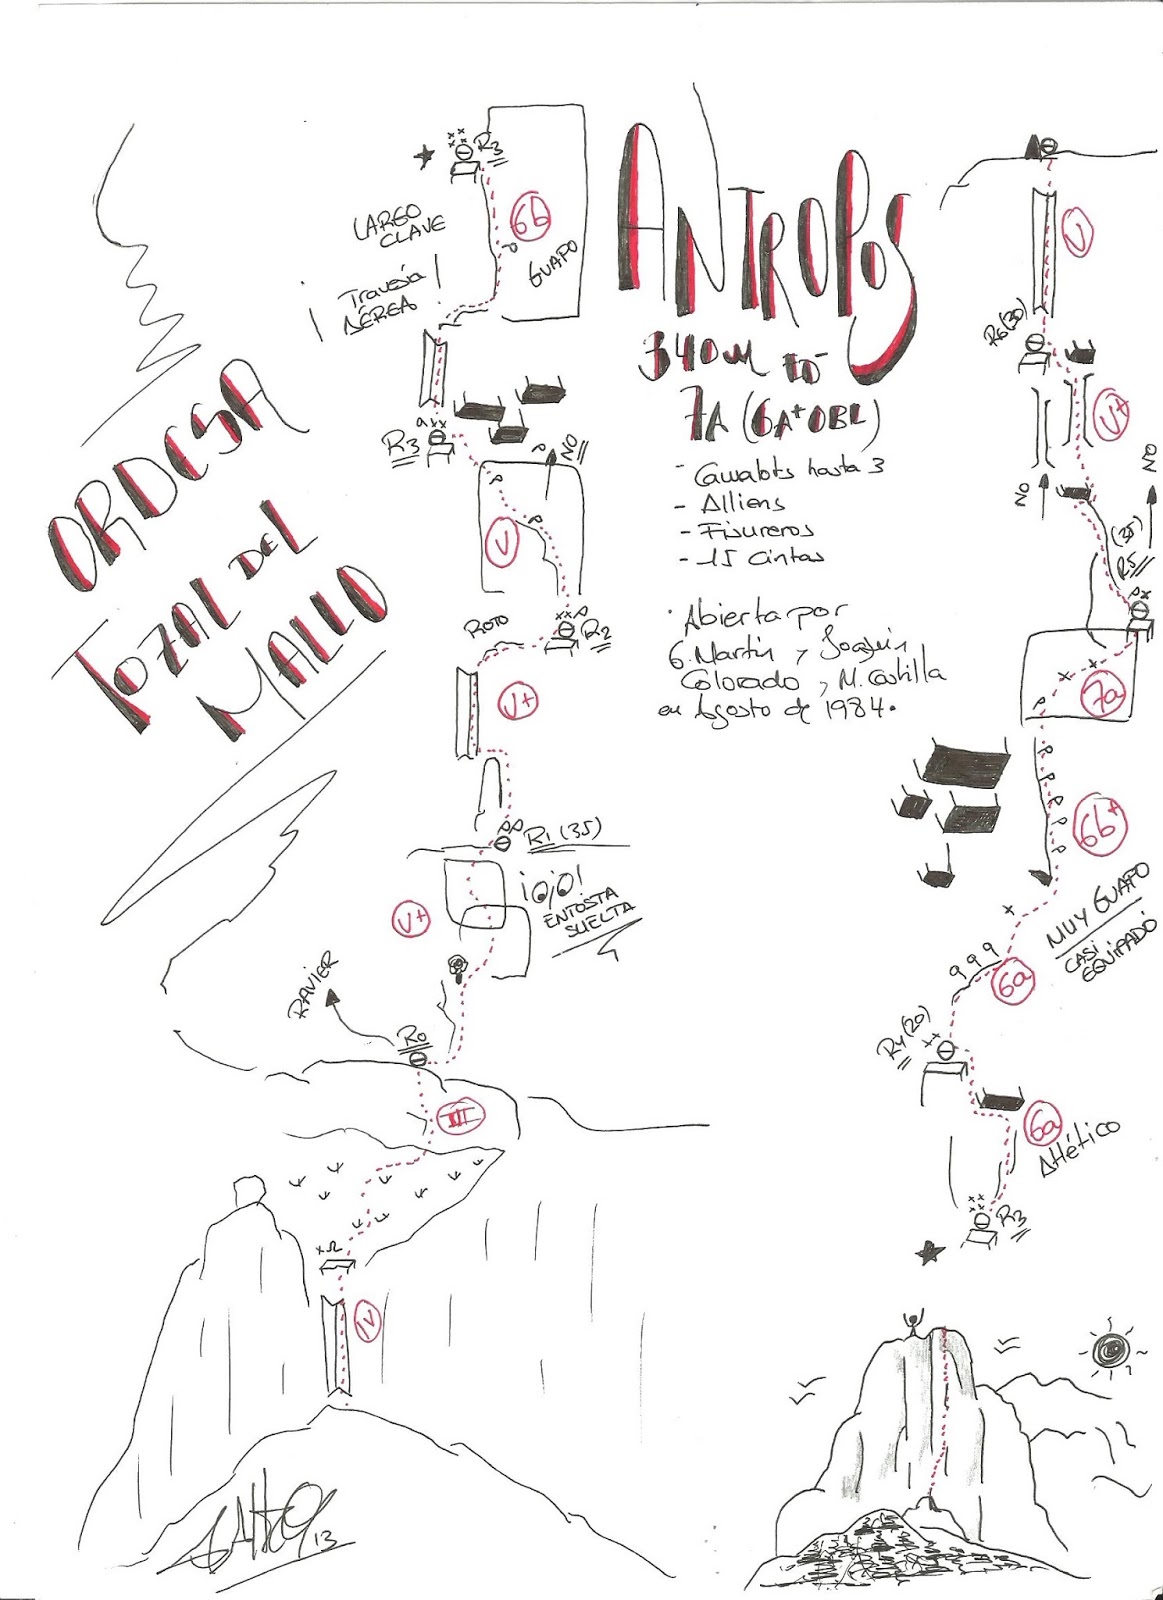 ORDESA
TOZAL DEL
MALLO
R3
LARGO
CLAVE
6b
GUAPO
¡ Travesía !
AÉREA
R3
NO
V
ROTO
R2
V+
R1 (35)
¡OJO!
ENTOSTA
SUELTA
V+
RAVIER
R0
III
IV
13
ANTROPOS
340M ED-
7A (6A+ OBL)
- Camalots hasta 3
- Alliens
- Fisureros
- 15 Cintas
· Abierta por
G. Martín y Joaquín
Colorado y M. Castilla
en Agosto de 1984.
V
R6 (30)
V+
NO
NO
R5 (35)
7a
6b+
MUY GUAPO
CASI
EQUIPADO
6a
R4 (20)
6a
Atlético
R3